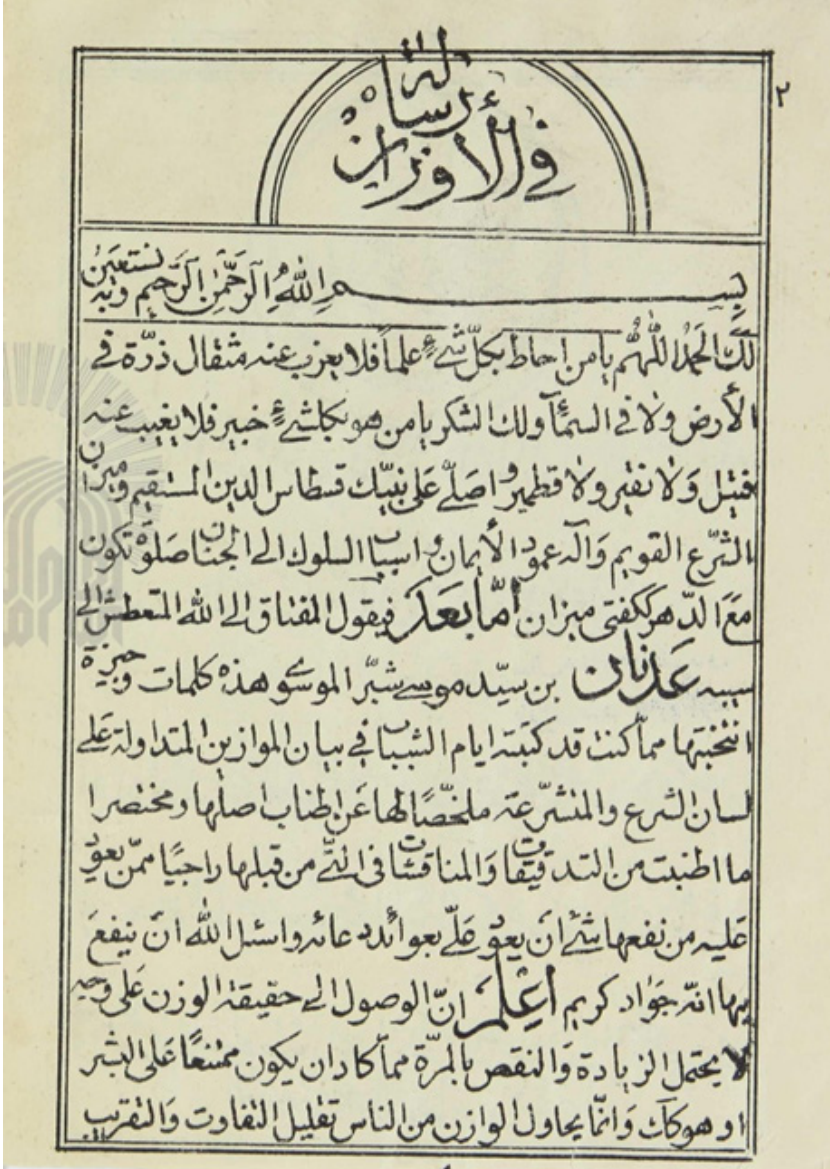 ٢
رسالة
في الأوزان
بسم الله الرحمن الرحيم وبه نستعين
لك الحمد اللهم يا من احاط بكل شئ علماً فلا يعزب عنه مثقال ذرّة في
الأرض ولا في السمآء ولك الشكر يا من هو بكلشئ خبير فلا يغيب عنه
فتيل ولا نقير ولا قطمير واصلّي على نبيّك قسطاس الدين المستقيم وميزان
الشرع القويم وآله عمود الأيمان واسباب السلوك الى الجنان صلوة تكون
مع الدهر ككفتى ميزان أمّا بعد فيقول المفتاق الى الله المتعطش الى
سيبه عدنان بن سيّد موسى شبّر الموسوي هذه كلمات وجيزة
انتخبتها مما كنت قد كتبته ايام الشباب في بيان الموازين المتداولة على
لسان الشرع والمتشرّعة ملخّصًا لها عن اطناب اصلها ومختصرا
ما اطنبت من التدقيقات والمناقشات في التي من قبلها راجيًا ممّن يعود
عليه من نفعها شئ أن يعود علّي بعوائد دعائه واسئل الله ان ينفع
بها انّه جواد كريم أعلم انّ الوصول الى حقيقة الوزن على وجه
لا يحتمل الزيادة والنقص بالمرّة مما كاد ان يكون ممتنعًا على البشر
او هو كك وانّما يحاول الوازن من الناس تقليل التفاوت والتقريب